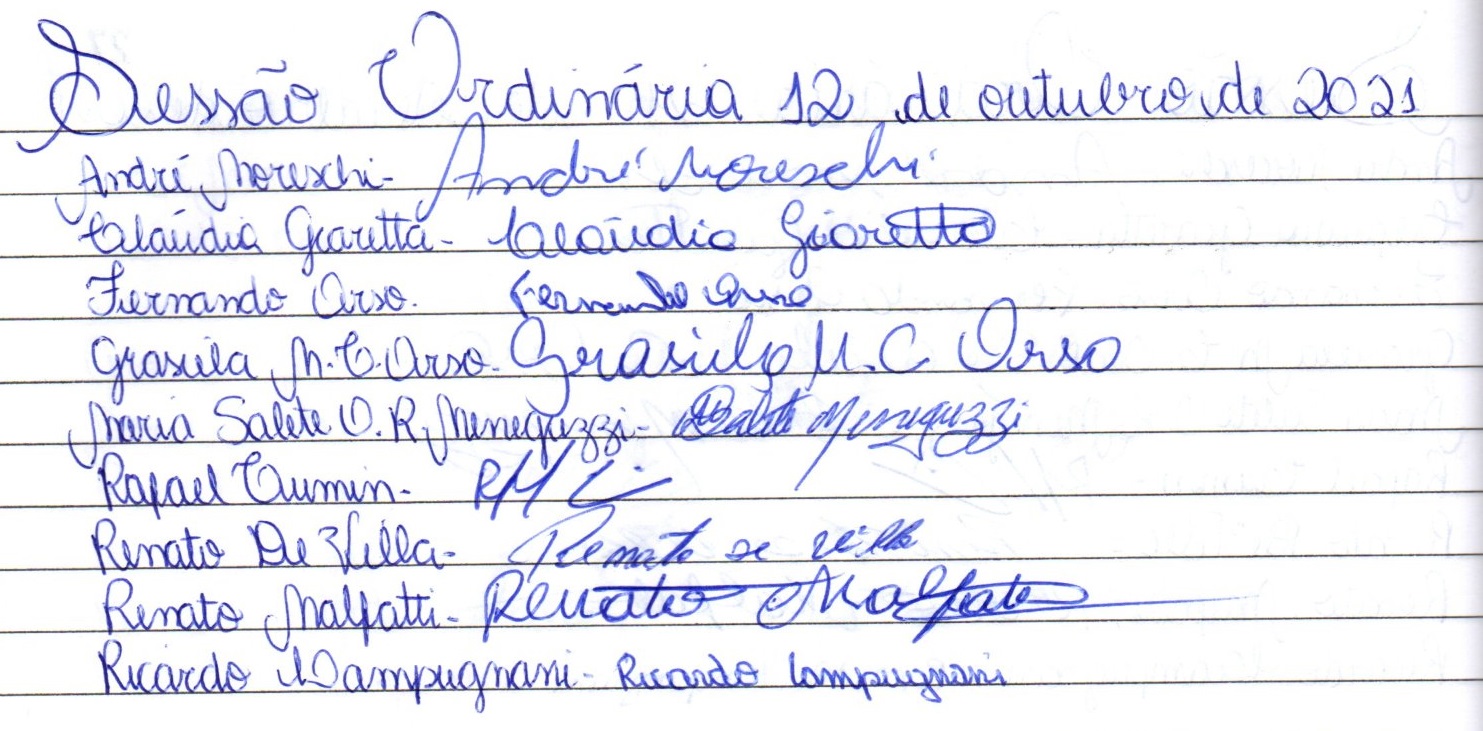 Sessão Ordinária 12 de outubro de 2021
André Moreschi - André Moreschi
Claúdia Giaretta - Claúdia Giaretta
Fernando Orso. Fernando Orso
Grasiela M. C. Orso - Grasiela M. C Orso
Maria Salete O. R. Menegazzi - Salete Menegazzi
Rafael Tumin -
Renato De Villa - Renato de villa
Renato Malfatti - Renato Malfatti
Ricardo Lampugnani - Ricardo Lampugnani